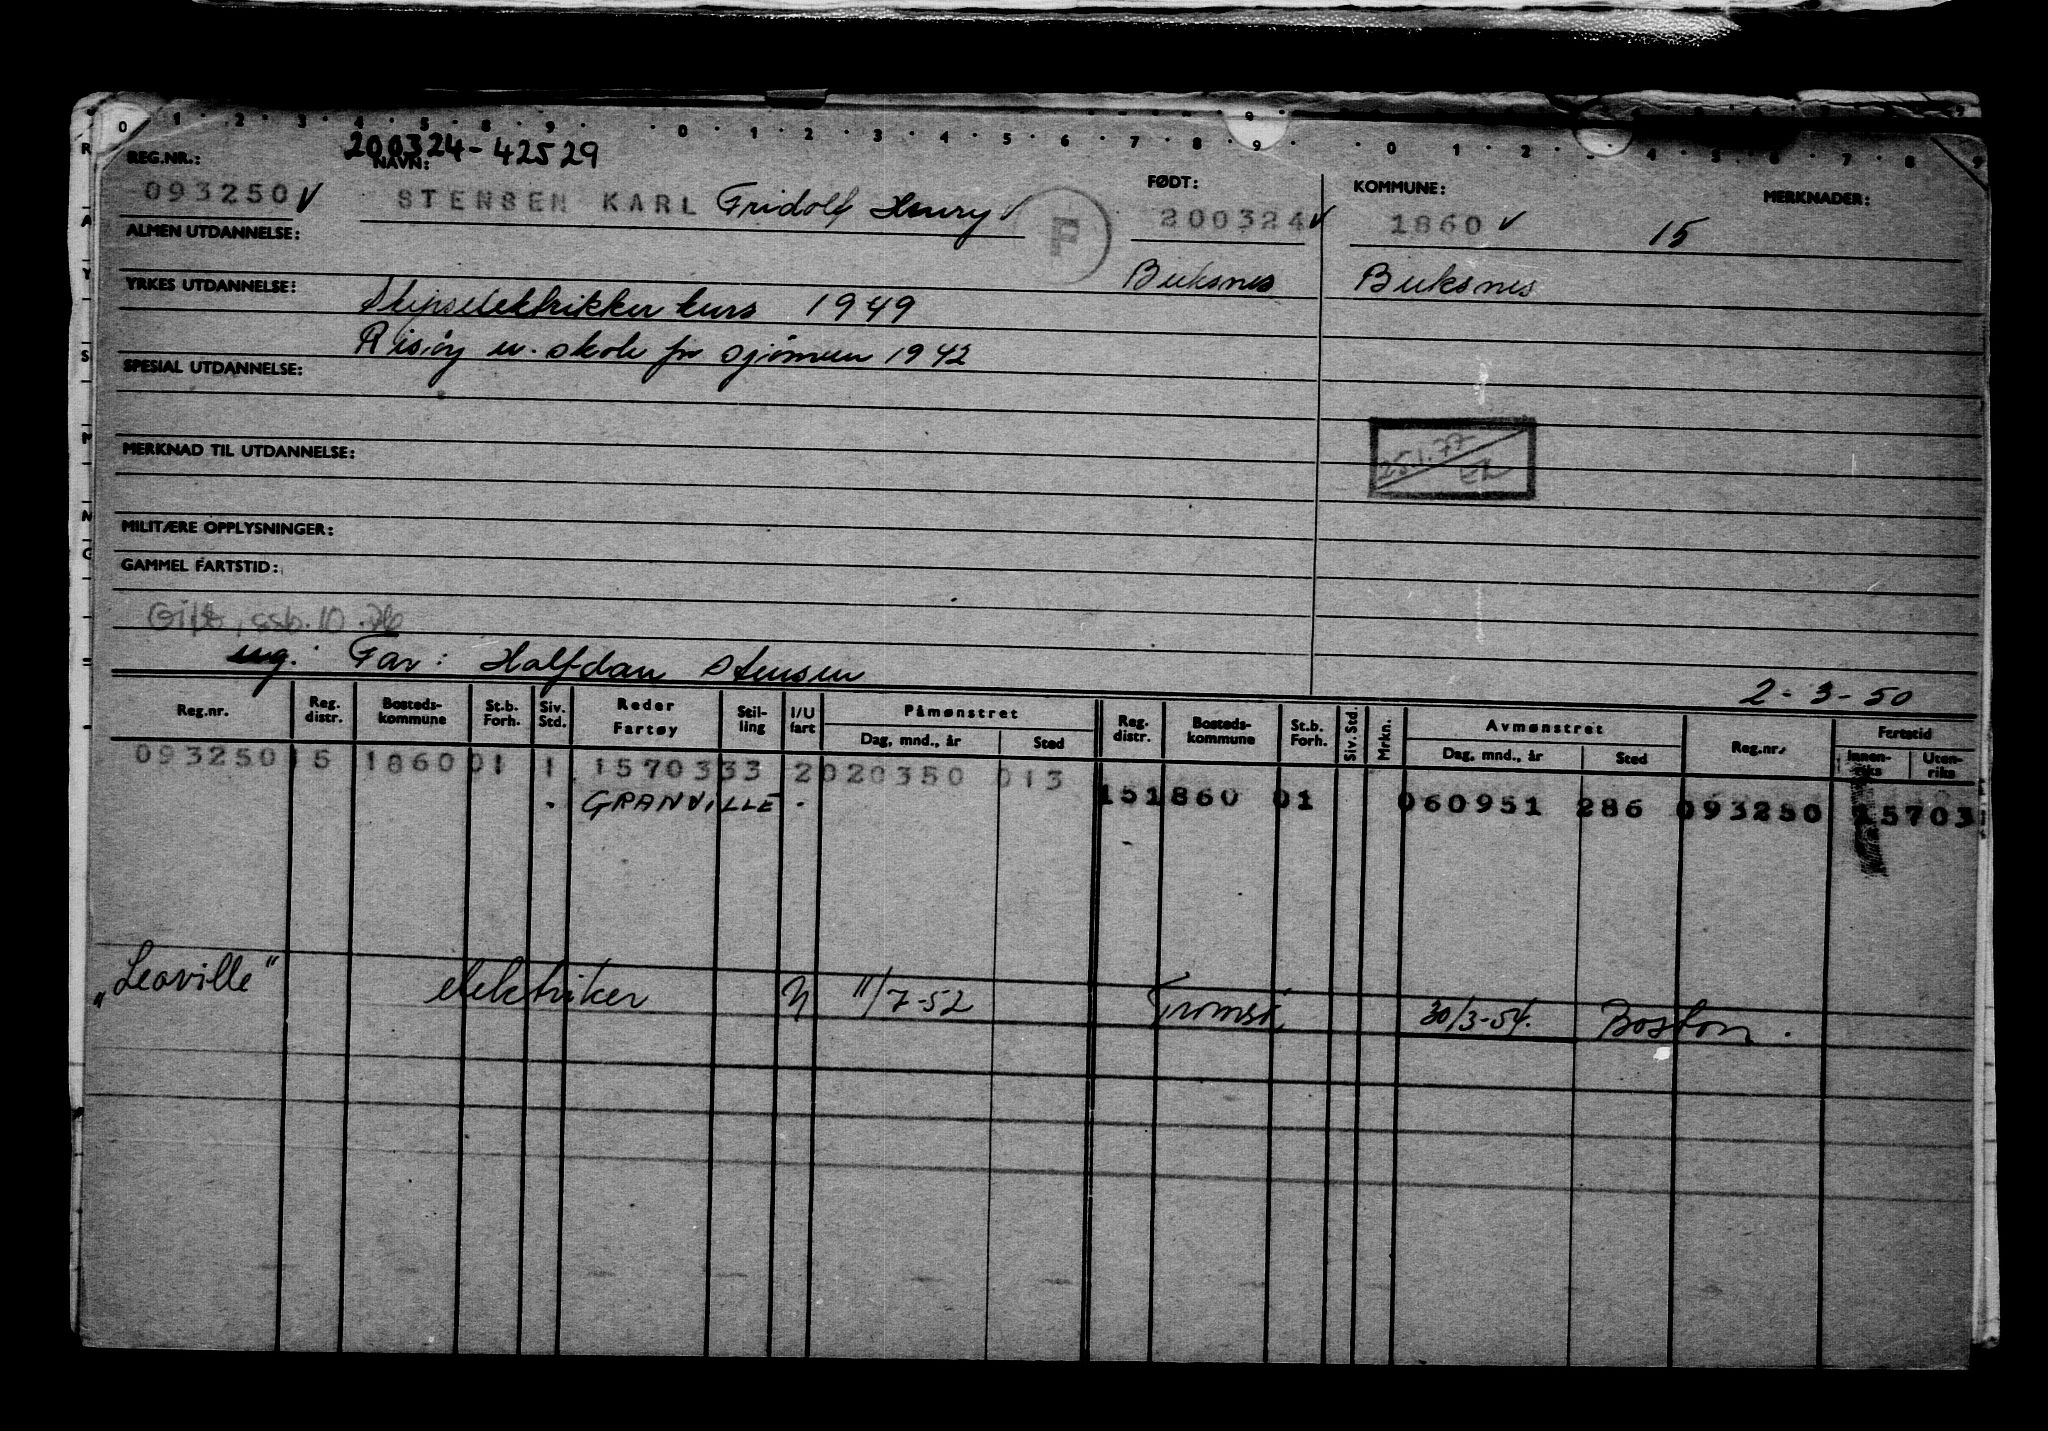 0 1 2 3 4 5 8 9 0 1 2 3 4 5 6 7 8 9 0 1 2 4 5 6 7 8 9
200324-42529
REG.NR.: NAVN: FØDT: KOMMUNE: MERKNADER:
093250 V STENSEN KARL Fridolf Henry V F 200324 V 1860 V 15
ALMEN UTDANNELSE:
Buksnes Buksnes
YRKES UTDANNELSE: Skipselektrikker kurs 1949
Risøy u. skole for sjømenn 1942
SPESIAL UTDANNELSE:
MERKNAD TIL UTDANNELSE:
MILITÆRE OPPLYSNINGER:
GAMMEL FARTSTID:
Gift, ssb. 10.76
ug. Far: Halfdan Stensen
2-3-50
Reg.nr. Reg. distr. Bosteds-kommune St.b. Forh. Siv. Std. Reder Fartøy Stil-ling I/U fart Påmønstret Dag, mnd., år Sted Reg. distr. Bosteds-kommune St.b. Forh. Siv. Std. Mrkn. Avmønstret Dag, mnd., år Sted Reg.nr. Fartstid Innen-riks Uten-riks
093250 15 1860 01 1 15703 33 2 020350 013
- GRANVILLE - 15 1860 01 060951 286 093250 15703
"Leoville" elektriker U 11/7-52 Tromsø 30/3-54. Boston.